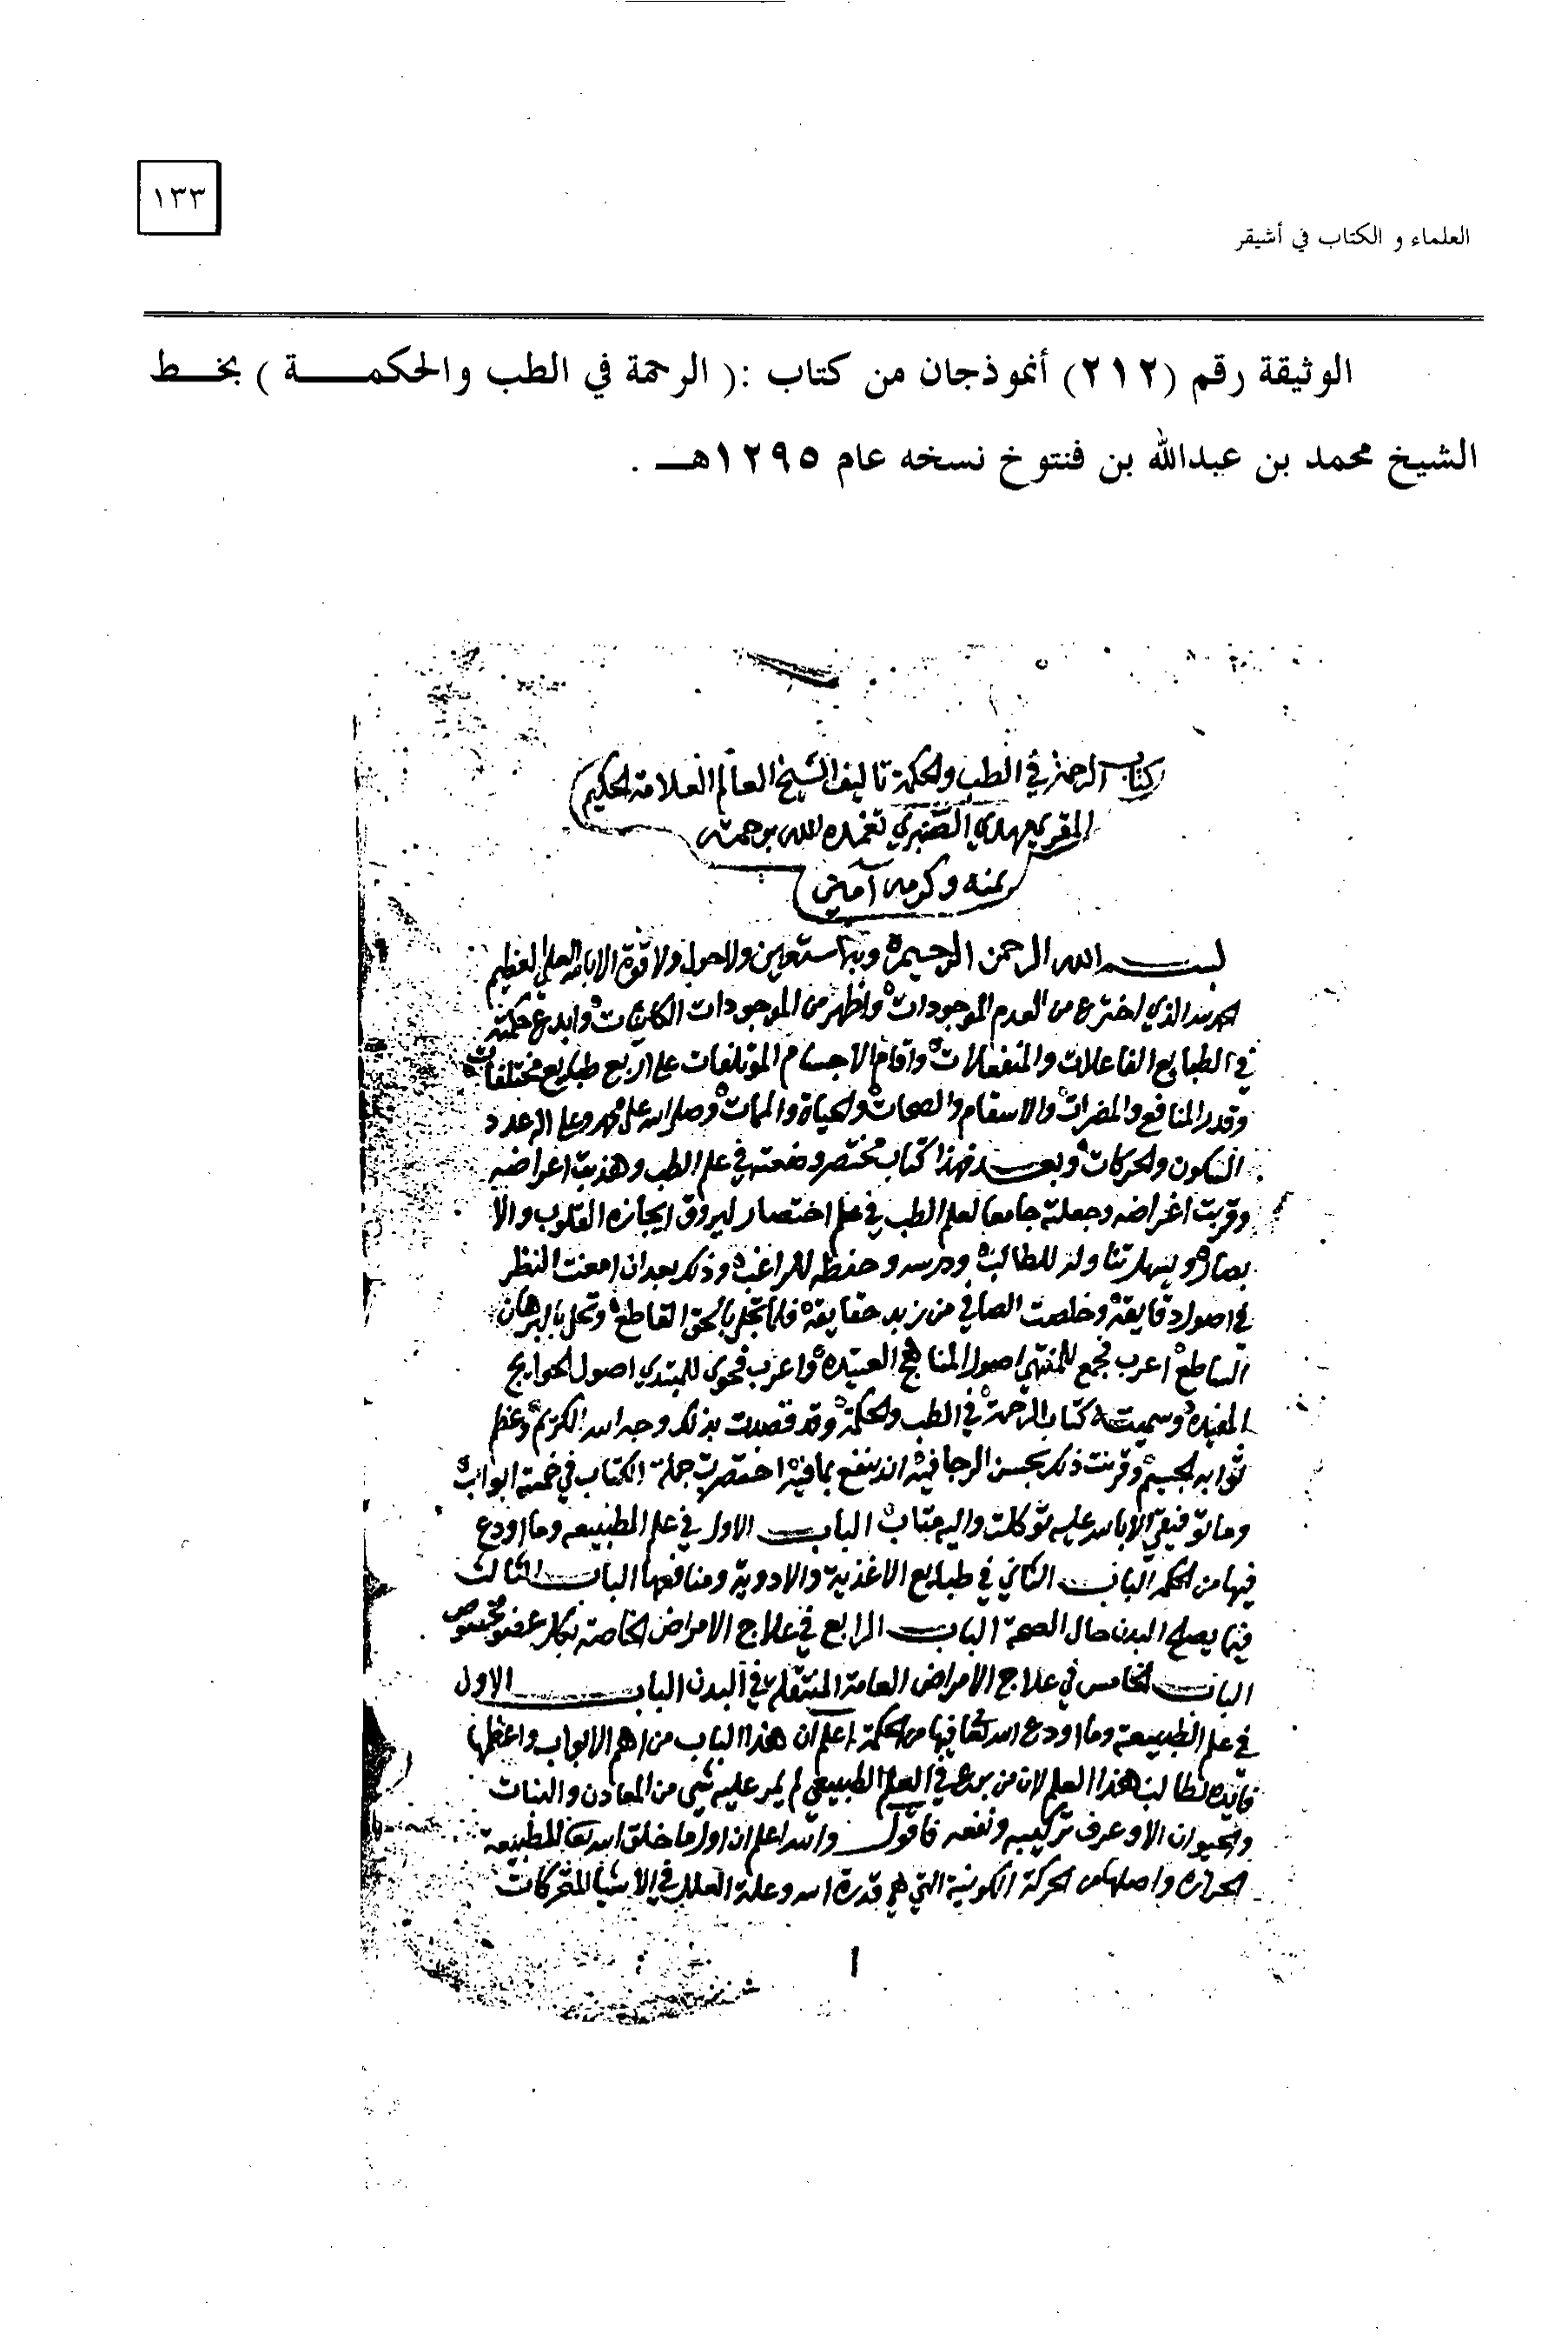 ١٣٣
العلماء و الكتاب في أشيقر
الوثيقة رقم (٢١٢) أنموذجان من كتاب :( الرحمة في الطب والحكمـــــة ) بخـــط
الشيخ محمد بن عبدالله بن فنتوخ نسخه عام ١٢٩٥هــ .
كتاب الرحمة في الطب والحكمة تاليف الشيخ العالم العلامة الحكيم
المقري مهدي الصنبري تغمده الله برحمته
بمنه وكرمه آمين
بسم الله الرحمن الرحيم وبه استعين ولا حول ولا قوة الا بالله العلي العظيم
الحمد لله الذي اخترع من العدم الموجودات واظهر من الموجودات الكائنات وابدع حكمته
في الطبايع الفاعلات والمنفعلات واقام الاجسام المؤتلفات على اربع طبايع مختلفات
وقدر المنافع والمضرات والاسقام والصحات والحياة والممات وصلى الله على محمد وعلى اله عدد
السكون والحركات وبعد فهذا كتاب مختصر وضعته في علم الطب وهذبت اعراضه
وقربت اغراضه وجعلته جامعا لعلم الطب في علم اختصار ليروق ايجازه القلوب والا
بصار ويسهل تناوله للطالب ودرسه وحفظه للراغب وذلك بعد ان امعنت النظر
في اصول دقايقه وخلصت الصافي من زبد حقايقه فلما تجلى بالحق القاطع وتحلى بالبرهان
الساطع اعرب فجمع للمنتهي اصول المناهج العتيده واعرب فحوى للمبتدي اصول الحوايج
المفيده وسميته كتاب الرحمة في الطب والحكمة وقد قصدت بذلك وجه الله الكريم وعظم
ثوابه الجسيم وقرنت ذلك بحسن الرجا فيه ان ينفع بما فيه اختصرت جملة الكتاب في خمسة ابواب
وما توفيقي الا بالله عليه توكلت واليه متاب الباب الاول في علم الطبيعه وما اودع
فيها من الحكم الباب الثاني في طبايع الاغذية والادوية ومنافعها الباب الثالث
فيما يصلح البدن حال الصحة الباب الرابع في علاج الامراض الخاصة بكل عضو مخصوص
الباب الخامس في علاج الامراض العامة المتنقلة في البدن الباب الاول
في علم الطبيعة وما اودع الله تعالى فيها من الحكمة اعلم ان هذا الباب من اهم الابواب واعظمها
فايده لطالب هذا العلم لان من برع في العلم الطبيعي لم يمر عليه شي من المعادن والنبات
والحيوان الا وعرف تركيبه ونفعه فاقول والله اعلم ان اول ما خلق الله تعالى للطبيعة
الحراره واصلها من الحركة الكونية التي هي قدرة الله وعلة العلل في الاشيا المتحركات
١